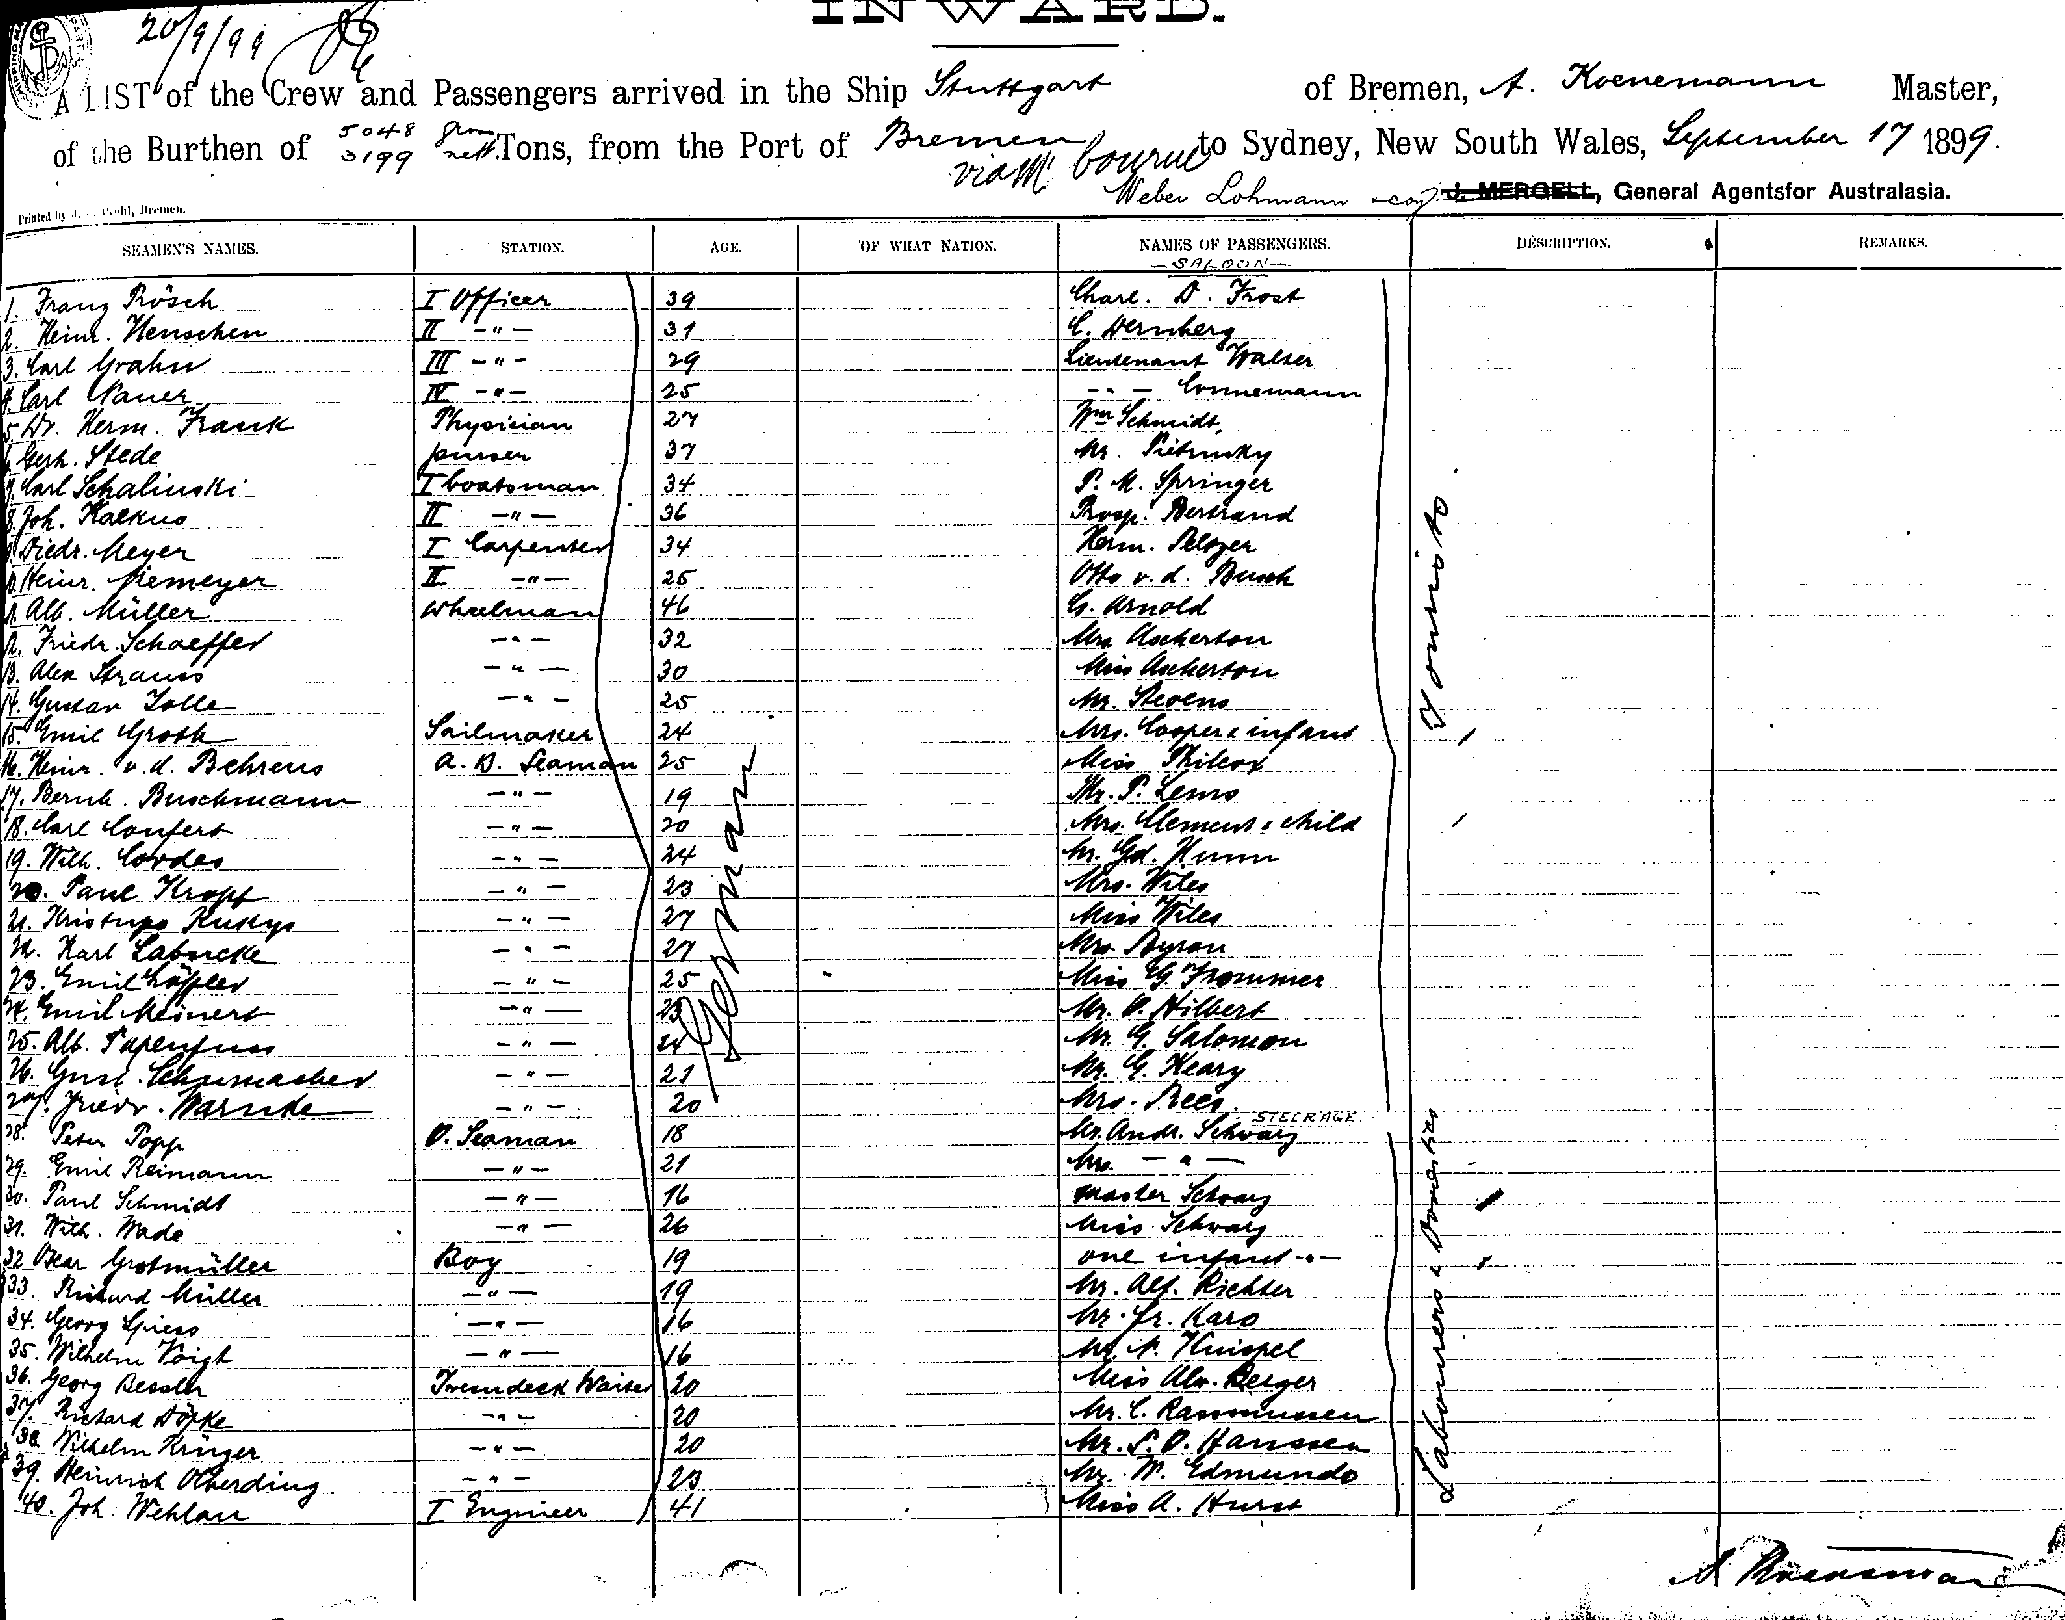 INWARD.
20/9/99
A LIST of the Crew and Passengers arrived in the Ship Stuttgart of Bremen, A. Koenemann Master,
of the Burthen of 5048 gross 3199 nett. Tons, from the Port of Bremen via M'bourne to Sydney, New South Wales, September 17 1899.
Weber Lohmann & Coy J. MERGELL, General Agentsfor Australasia.
Printed by Bremen.
SEAMEN'S NAMES. STATION. AGE. OF WHAT NATION. NAMES OF PASSENGERS. DESCRIPTION. REMARKS.
- SALOON -
1. Franz Prösch I Officer 39 Charl. D. Frost
2. Heinr. Henschen II -"- 31 C. Dernberg
3. Carl Grahn III -"- 29 Lieutenant Walter
4. Carl Nauer IV -"- 25 -"- Connemann
5. Dr. Herm. Frank Physician 27 Wm Schmidt,
6. Gerh. Stede purser 37 Mr.
7. Carl Schalinski I boatsman 34 P. M. Springer
8. Joh. Kalkus II -"- 36 Prosp. Bertrand
9. Diedr. Meyer I Carpenter 34 Herm. Pelzer
10. Heinr. Niemeyer II -"- 25 Otto v. d. Busch
11. Alb. Müller Wheelman 46 G. Arnold
12. Friedr. Schaeffer -"- 32 Mrs Ascherton
13. Alex Strauss -"- 30 Miss Ascherton
14. Gustav Tolle -"- 25 Mr. Stevens
15. Emil Groth Sailmaker 24 Mrs. Cooper & infant
16. Heinr. v. d. Behrens A. B. Seaman 25 Miss Philcox
17. Bernh. Buschmann -"- 19 Mr. P. Lems
18. Carl Confert -"- 20 Mrs. Clement & child
19. Wilh. Cordes -"- 24 Mr. Gd. Hunn
20. Paul Kropf -"- 23 Mrs. Wiles
21. Kristups Kukys -"- 27 Miss Wiles
22. Karl Labucke -"- 27 Mrs. Byron
23. Emil Löffler -"- 25 Miss G. Frommer
24. Emil Meinert -"- 23 Mr. O. Hilbert
25. Alb. Papenfuss -"- 24 Mr. G. Salomon
26. Gust. Schumacher -"- 21 Mr. G. Keary
27. Friedr. Warnke -"- 20 Mrs. Rees
STEERAGE
28. Peter Popp O. Seaman 18 Mr. Andr. Schwarz
29. Emil Reimann -"- 21 Mrs. -"-
30. Paul Schmidt -"- 16 Master Schwarz
31. Wilh. Wade -"- 26 Miss Schwarz
32 Oscar Grotmüller Boy 19 one infant -"-
33. Richard Müller -"- 19 Mr. Alf. Richter
34. Georg Spiess -"- 16 Mr. Fr. Karo
35. Wilhelm Voigt -"- 16 Mr. A. Knispel
36. Georg Bessler Tweendeck Waiter 20 Miss Alw. Berger
37. Richard Döpke -"- 20 Mr. C. Rasmussen
38 Wilhelm Krüger -"- 20 Mr. P. O. Hanssen
39. Heinrich Olverding -"- 23 Mr. W. Edmunds
40. Joh. Wehlau I Engineer 41 Miss A. Hurst
German
Tourists
Labourers & Domestics
A. Koenemann